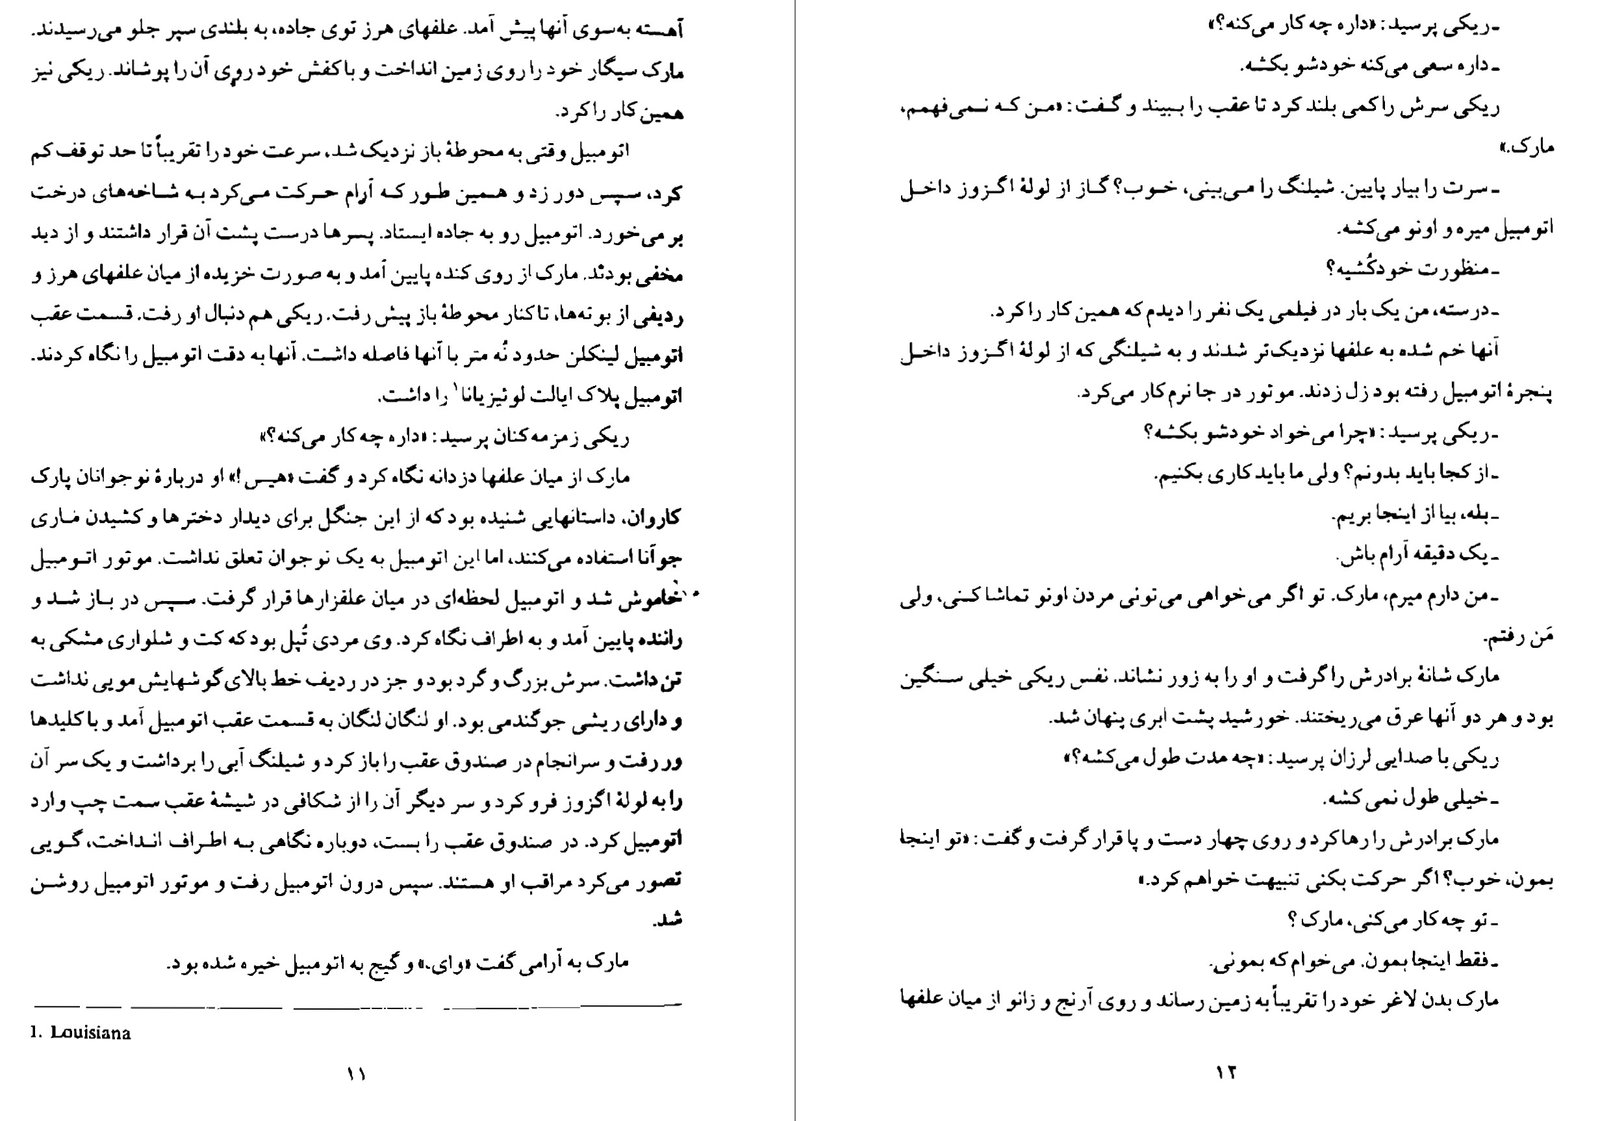 آهسته به‌سوی آنها پیش آمد. علفهای هرز توی جاده، به بلندی سپر جلو می‌رسیدند.
مارک سیگار خود را روی زمین انداخت و با کفش خود روی آن را پوشاند. ریکی نیز
همین کار را کرد.
اتومبیل وقتی به محوطهٔ باز نزدیک شد، سرعت خود را تقریباً تا حد توقف کم
کرد، سپس دور زد و همین طور که آرام حرکت می‌کرد به شاخه‌های درخت
بر می‌خورد. اتومبیل رو به جاده ایستاد. پسرها درست پشت آن قرار داشتند و از دید
مخفی بودند. مارک از روی کنده پایین آمد و به صورت خزیده از میان علفهای هرز و
ردیفی از بوته‌ها، تا کنار محوطهٔ باز پیش رفت. ریکی هم دنبال او رفت. قسمت عقب
اتومبیل لینکلن حدود نُه متر با آنها فاصله داشت. آنها به دقت اتومبیل را نگاه کردند.
اتومبیل پلاک ایالت لوئیزیانا۱ را داشت.
ریکی زمزمه‌کنان پرسید: «داره چه کار می‌کنه؟»
مارک از میان علفها دزدانه نگاه کرد و گفت «هیس!» او دربارهٔ نوجوانان پارک
کاروان، داستانهایی شنیده بود که از این جنگل برای دیدار دخترها و کشیدن ماری
جوآنا استفاده می‌کنند، اما این اتومبیل به یک نوجوان تعلق نداشت. موتور اتومبیل
خاموش شد و اتومبیل لحظه‌ای در میان علفزارها قرار گرفت. سپس در باز شد و
راننده پایین آمد و به اطراف نگاه کرد. وی مردی تُپل بود که کت و شلواری مشکی به
تن داشت. سرش بزرگ و گرد بود و جز در ردیف خط بالای گوشهایش مویی نداشت
و دارای ریشی جوگندمی بود. او لنگان لنگان به قسمت عقب اتومبیل آمد و با کلیدها
ور رفت و سرانجام در صندوق عقب را باز کرد و شیلنگ آبی را برداشت و یک سر آن
را به لولهٔ اگزوز فرو کرد و سر دیگر آن را از شکافی در شیشهٔ عقب سمت چپ وارد
اتومبیل کرد. در صندوق عقب را بست، دوباره نگاهی به اطراف انداخت، گویی
تصور می‌کرد مراقب او هستند. سپس درون اتومبیل رفت و موتور اتومبیل روشن
شد.
مارک به آرامی گفت «وای،» و گیج به اتومبیل خیره شده بود.
1. Louisiana
۱۱
ـ ریکی پرسید: «داره چه کار می‌کنه؟»
ـ داره سعی می‌کنه خودشو بکشه.
ریکی سرش را کمی بلند کرد تا عقب را ببیند و گفت: «من که نمی‌فهمم،
مارک.»
ـ سرت را بیار پایین. شیلنگ را می‌بینی، خوب؟ گاز از لولهٔ اگزوز داخل
اتومبیل میره و اونو می‌کشه.
ـ منظورت خودکُشیه؟
ـ درسته، من یک بار در فیلمی یک نفر را دیدم که همین کار را کرد.
آنها خم شده به علفها نزدیک‌تر شدند و به شیلنگی که از لولهٔ اگزوز داخل
پنجرهٔ اتومبیل رفته بود زل زدند. موتور در جا نرم کار می‌کرد.
ـ ریکی پرسید: «چرا می‌خواد خودشو بکشه؟
ـ از کجا باید بدونم؟ ولی ما باید کاری بکنیم.
ـ بله، بیا از اینجا بریم.
ـ یک دقیقه آرام باش.
ـ من دارم میرم، مارک. تو اگر می‌خواهی می‌تونی مردن اونو تماشا کنی، ولی
مَن رفتم.
مارک شانهٔ برادرش را گرفت و او را به زور نشاند. نفس ریکی خیلی سنگین
بود و هر دو آنها عرق می‌ریختند. خورشید پشت ابری پنهان شد.
ریکی با صدایی لرزان پرسید: «چه مدت طول می‌کشه؟»
ـ خیلی طول نمی‌کشه.
مارک برادرش را رها کرد و روی چهار دست و پا قرار گرفت و گفت: «تو اینجا
بمون، خوب؟ اگر حرکت بکنی تنبیهت خواهم کرد.»
ـ تو چه کار می‌کنی، مارک ؟
ـ فقط اینجا بمون. می‌خوام که بمونی.
مارک بدن لاغر خود را تقریباً به زمین رساند و روی آرنج و زانو از میان علفها
۱۲